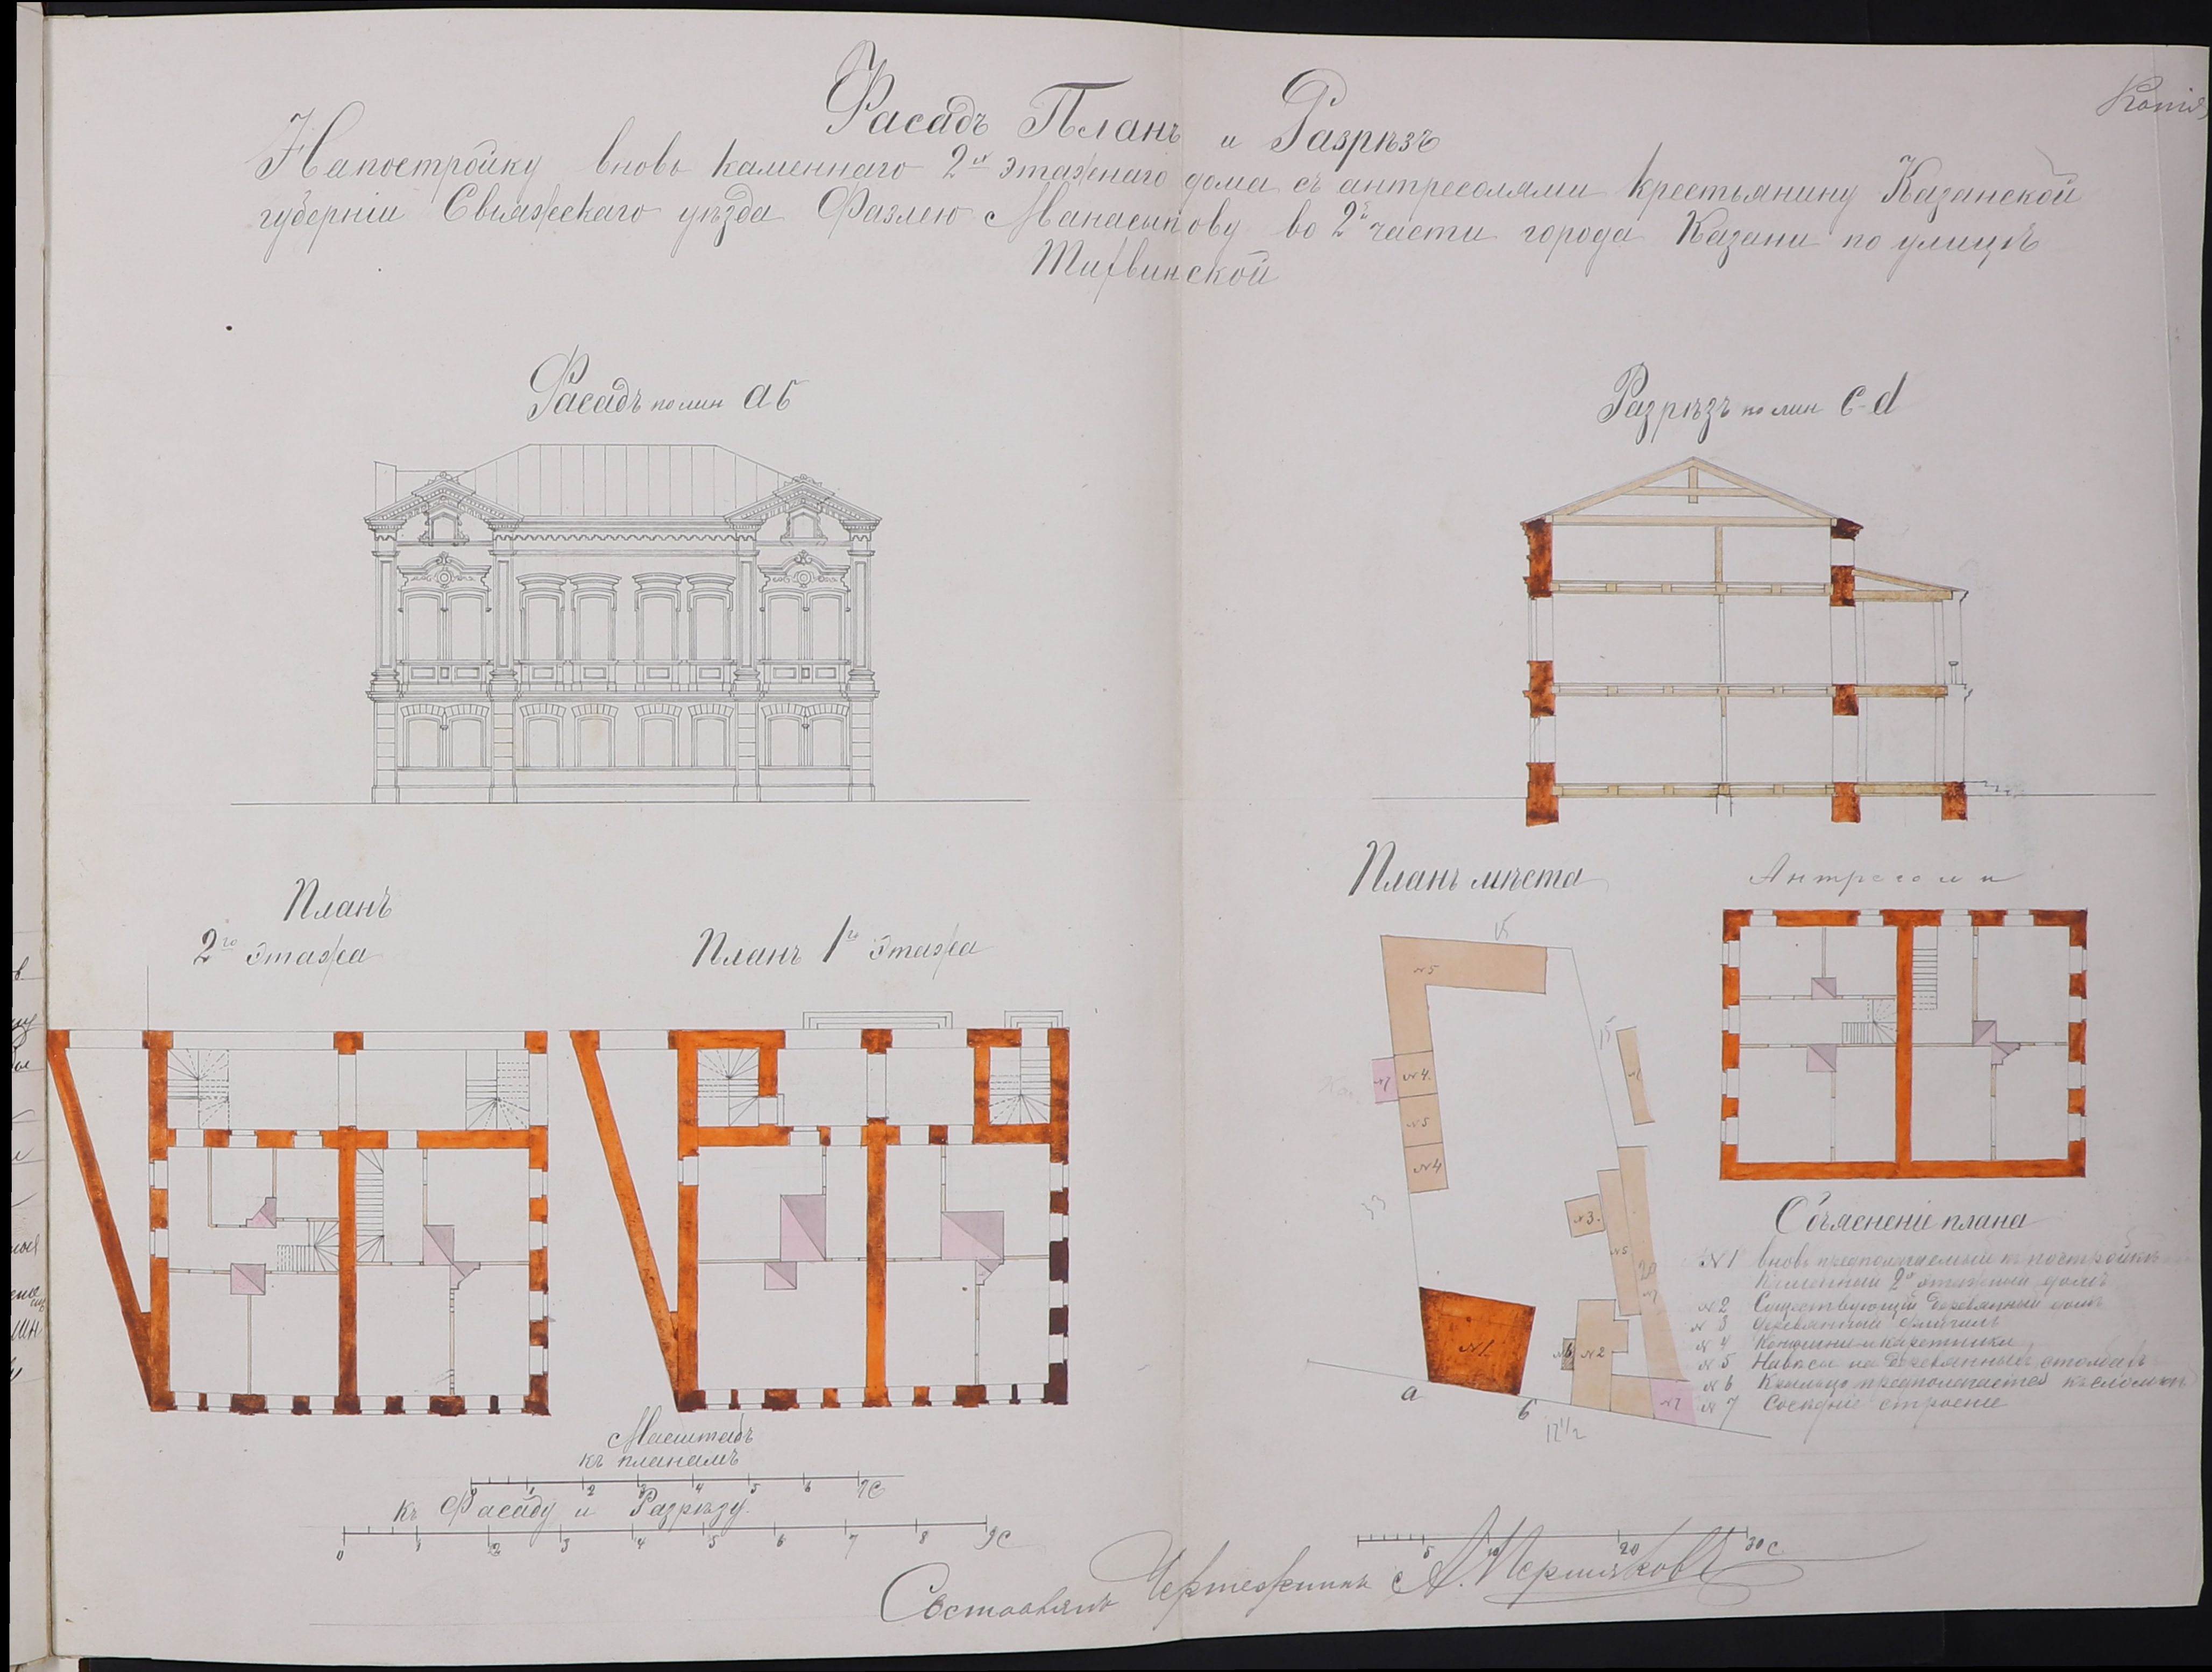 Копія
Фасадъ Планъ и Разрѣзъ
На постройку вновь каменнаго 2хъ этажнаго дома съ антресолями крестьянину Казанской
губерніи Свіяжскаго уѣзда Фазлею Манасыпову во 2й части города Казани по улицѣ
Тихвинской
Фасадъ по лин аб
Разрѣзъ по лин c-d
Планъ
2го этажа
Планъ 1го этажа
Планъ мѣста
Антресоли
15
№5
15
№7
№4.
№5
№4
33
№3.
№5
20
№1
№6
№2
№7
а
б
12 1/2
Объясненіе плана
№1 вновь предполагаемый къ постройкѣ
каменный 2хъ этажный домъ
№2 Существующій деревянный домъ
№3 деревянный флигель
№4 Конюшни и каретники
№5 Навѣсы на деревянныхъ столбахъ
№6 Крыльцо предполагается къ сломкѣ
№7 Сосѣднее строеніе
Масштабъ
къ планамъ
0 1 2 3 4 5 6 7С
къ Фасаду и Разрѣзу.
0 1 2 3 4 5 6 7 8 9С
5 10 20 30С
Составлялъ Чертежникъ А. Першяковъ